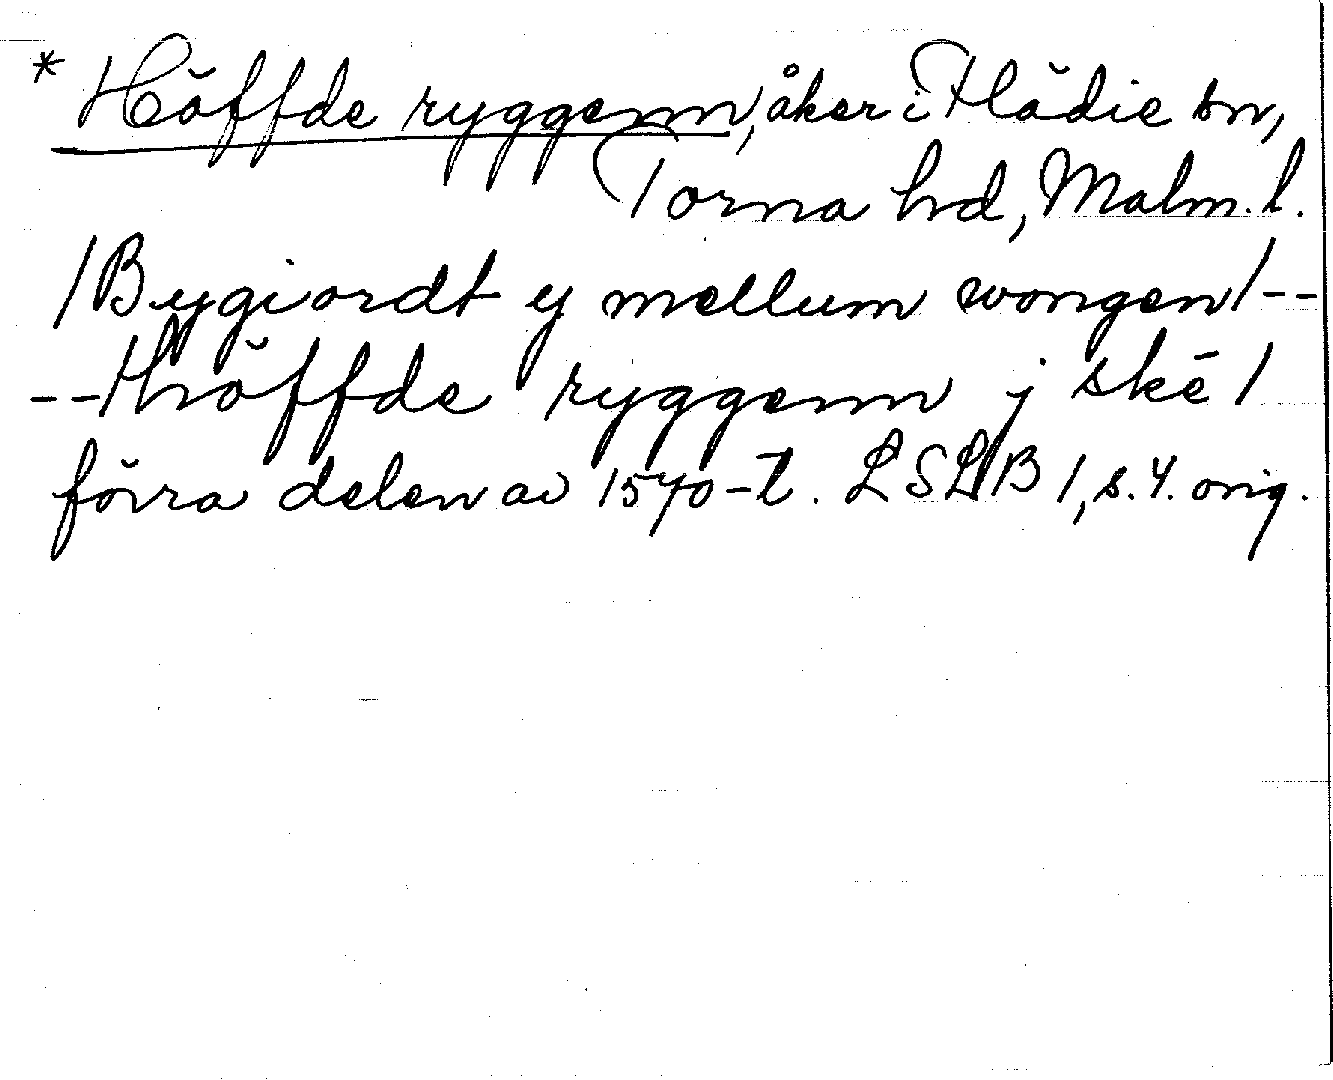 * Höffde ryggenn, åker i Flädie sn,
Torna hd, Malm. l.
/Bygiordt ij mellum wongen/--
--Höffde ryggenn j skē/
förra delen av 1570-t. LSLB 1, s. 4. orig.